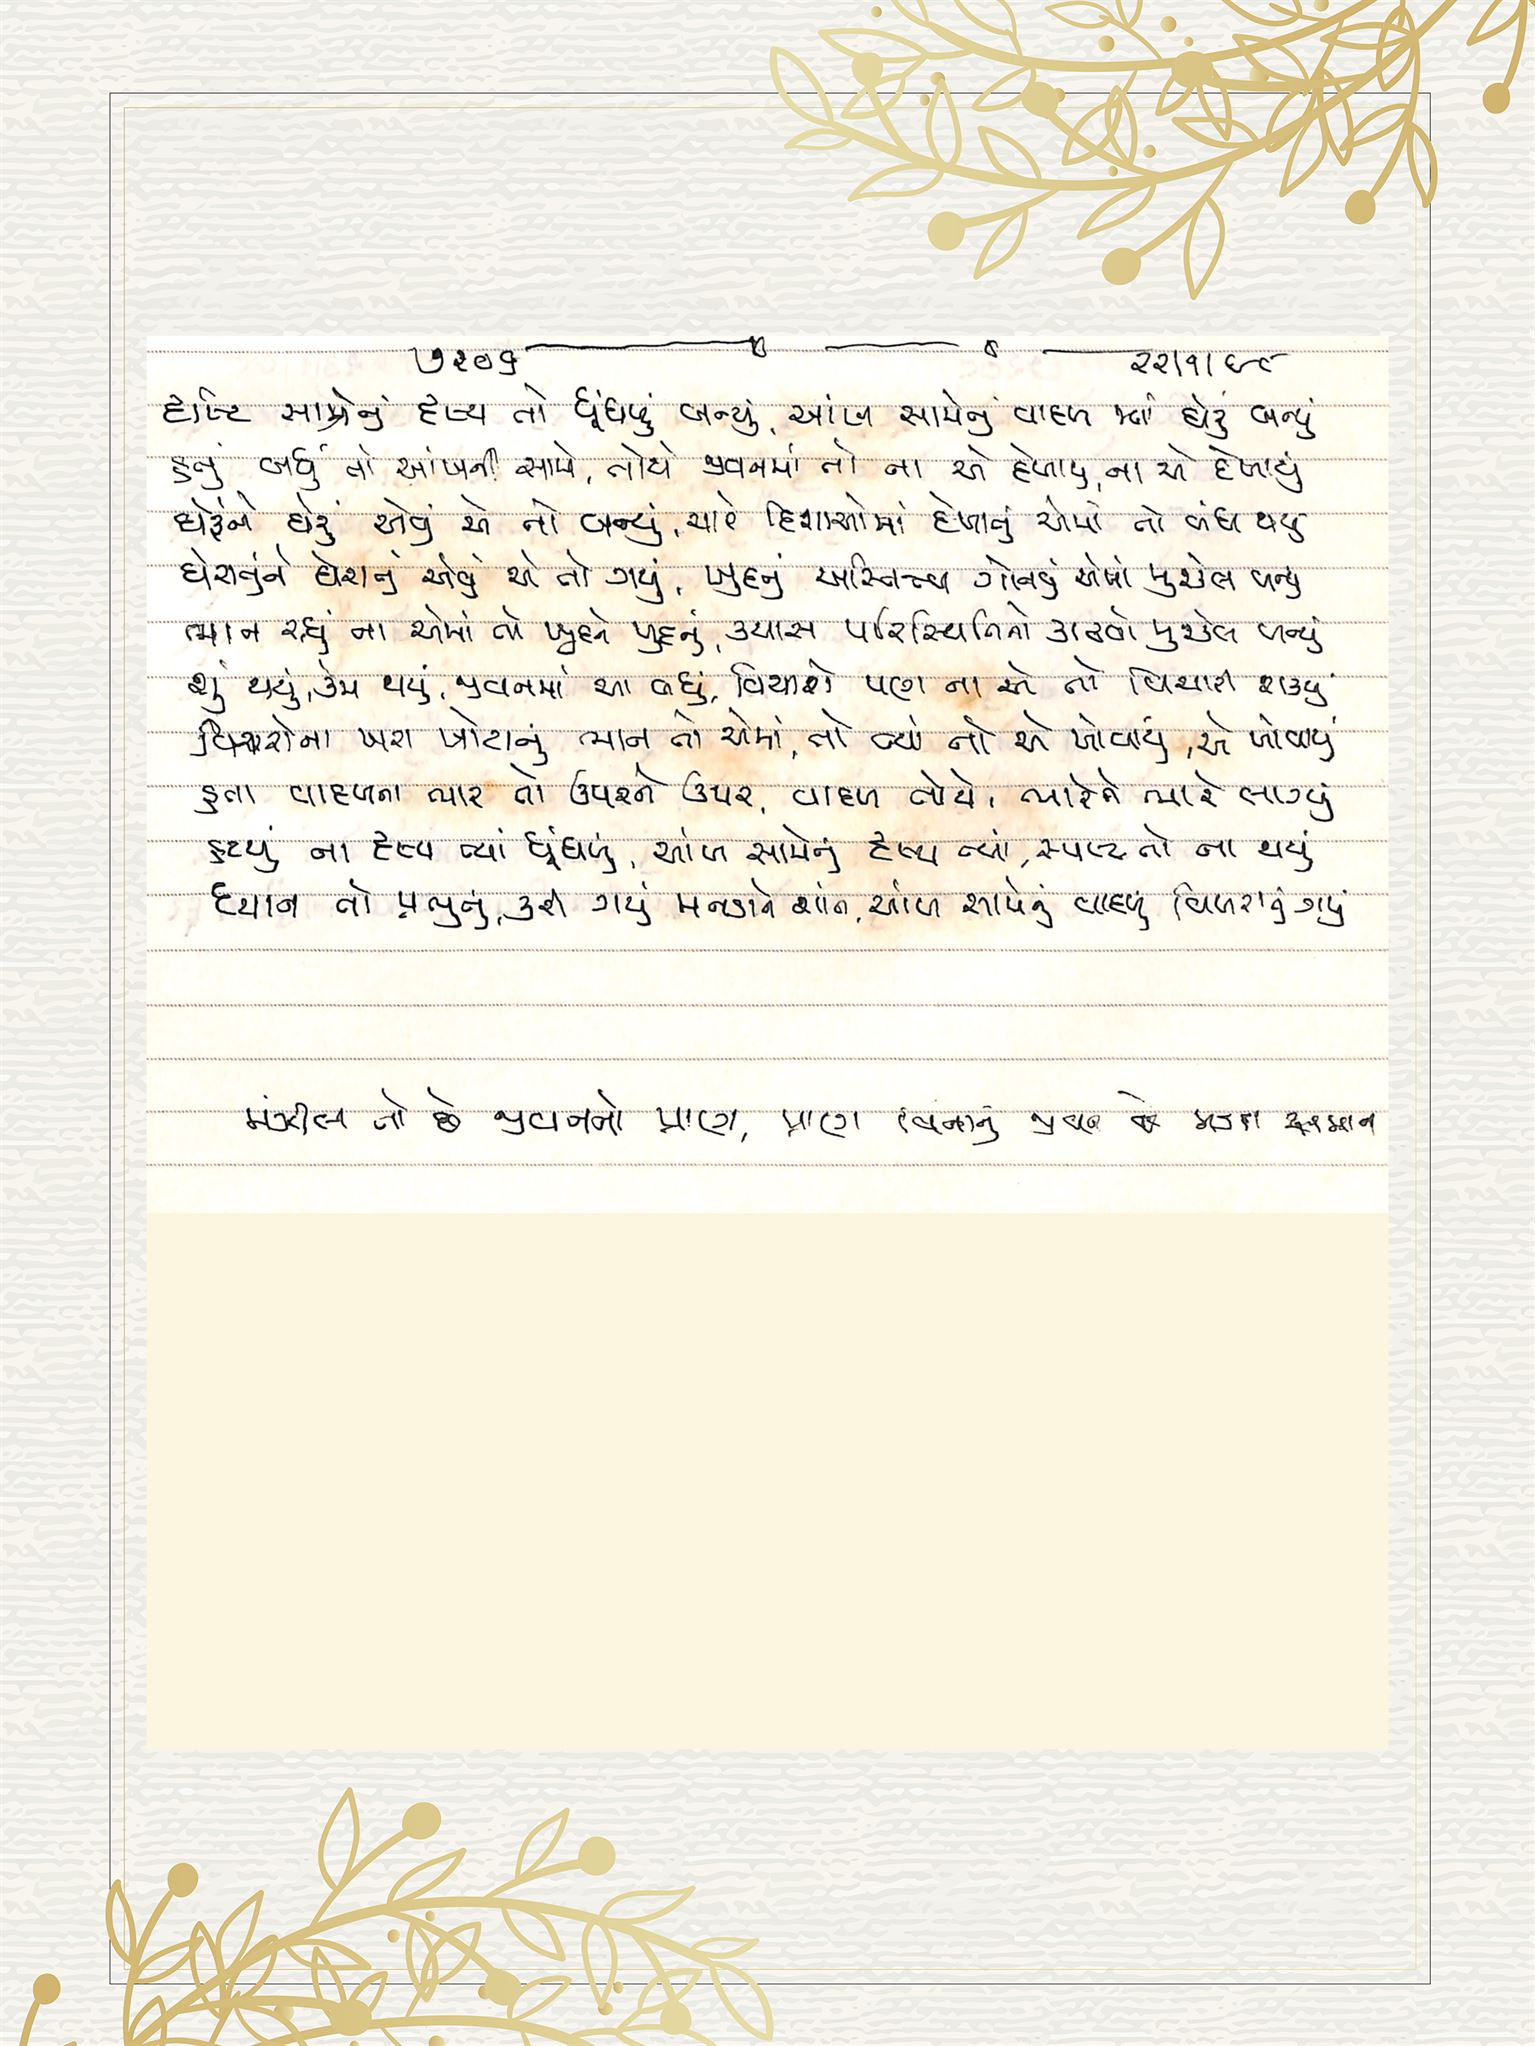 ૭૨૦૬ ૨૨/૧/૯૮
દૃષ્ટિ સામેનું દૃશ્ય તો ધૂંધળું બન્યું, આંખ સામેનું વાદળ જ્યાં ઘેરું બન્યું
હતું બધું તો આંખની સામે, તોયે જીવનમાં તો ના એ દેખાયું, ના એ દેખાયું
ઘેરુંને ઘેરું એવું એ તો બન્યું, ચારે દિશાઓમાં દેખાતું એમાં તો બંધ થયું
ઘેરાતુંને ઘેરાતું એવું એ તો ગયું, ખુદનું અસ્તિત્ત્વ ગોતવું એમાં મુશ્કેલ બન્યું
ભાન રહ્યું ના એમાં તો ખુદને ખુદનું, ક્યાસ પરિસ્થિતિનો કાઢવો મુશ્કેલ બન્યું
શું થયું, કેમ થયું, જીવનમાં આ બધું, વિચારો પણ ના એ તો વિચારી શક્યું
વિચારોના ખરા ખોટાનું ભાન તો એમાં, તો ત્યાં તો એ ખોવાયું, એ ખોવાયું
હતા વાદળના ભાર તો ઉપરને ઉપર, વાદળ તોયે ભારેને ભારે લાગ્યું
હટયું ના દૃશ્ય ત્યાં ધૂંધળું, આંખ સામેનું દૃશ્ય ત્યાં, સ્પષ્ટ તો ના થયું
ધ્યાન તો પ્રભુનું, કરી ગયું મનડાને શાંત, આંખ સામેનું વાદળું વિખરાતું ગયું
મંઝીલ તો છે જીવનનો પ્રાણ, પ્રાણ વિનાનું જીવન છે મડદા સમાન